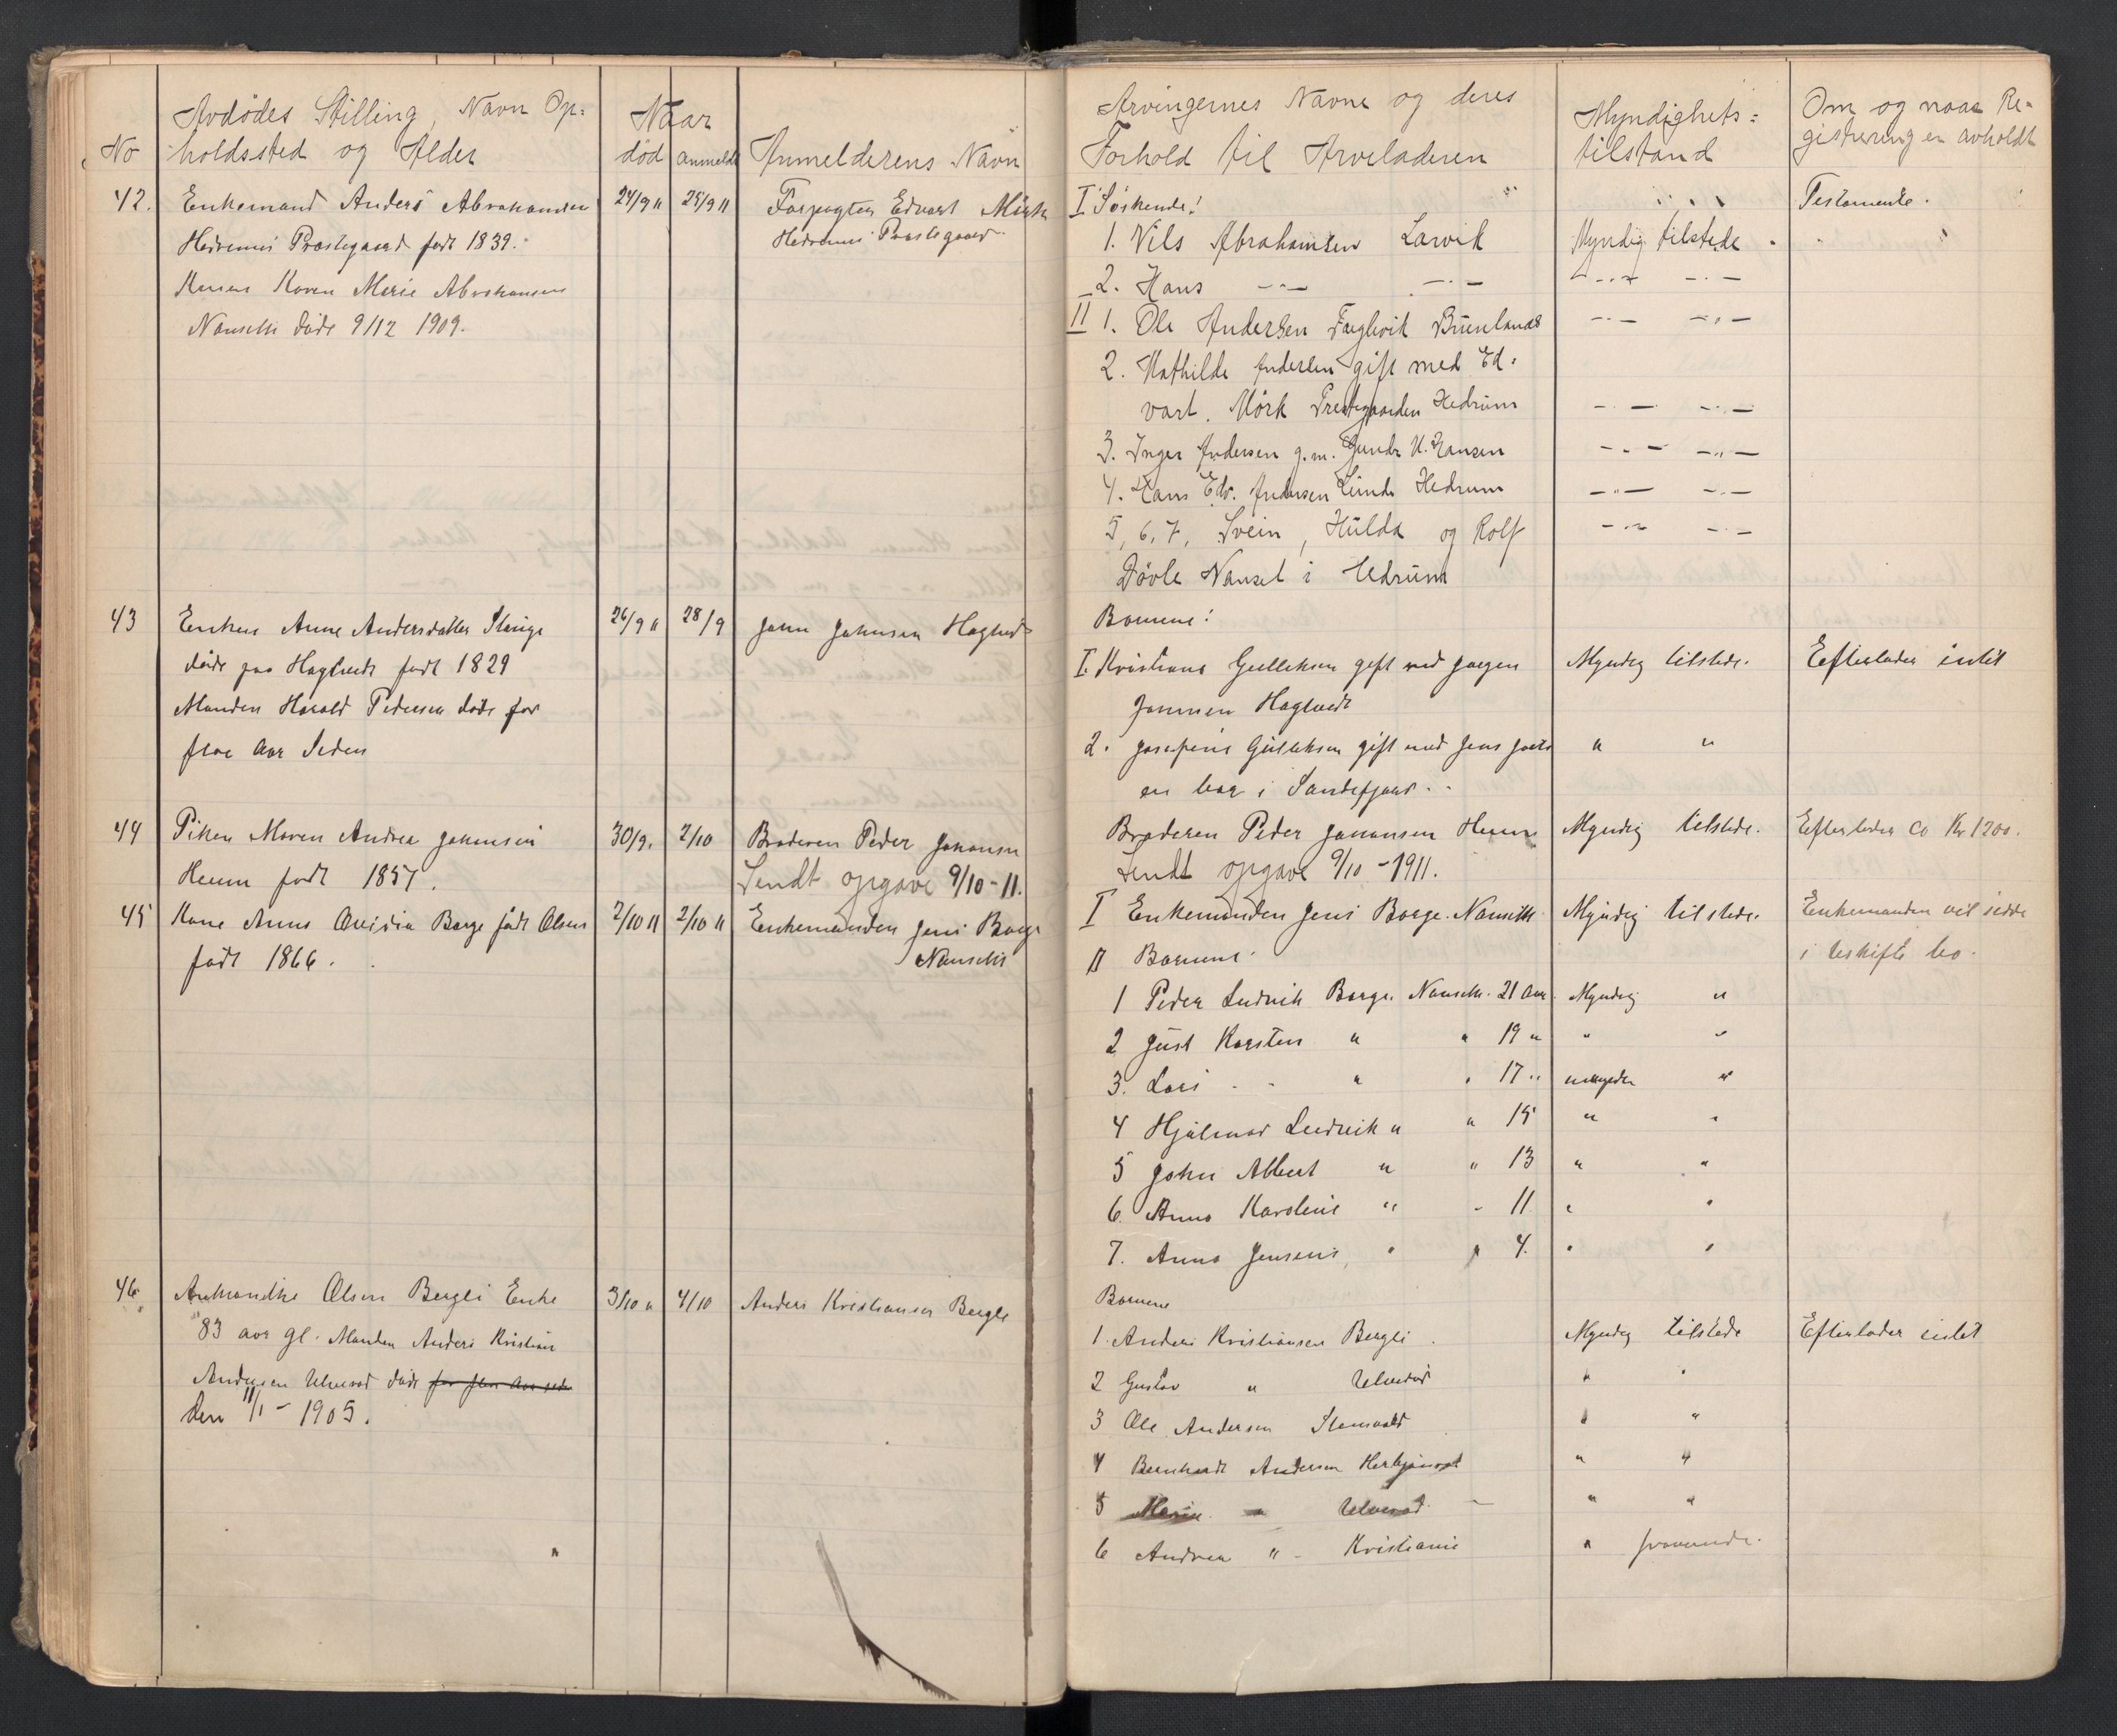 No
Avdödes Stilling, Navn Op=
holdssted og Alder
Naar
död anmeldt
Anmelderens Navn
Arvingernes Navne og deres
Forhold til Arveladeren
Myndighets=
tilstand
Om og naar Re=
gistrering er avholdt
42. Enkemand Anders Abrahamsen 24/9 11 25/9 11 Forpagter Edvart Mörk
Hedrums Præstegaard født 1839. Hedrums Præstegaard
Konen Karen Marie Abrahamsen
Nanseth døde 9/12 1909.
I Søskende! Testamente.
1. Nils Abrahamsen Larvik Myndig tilstede
2. Hans -"- -"- -"- -"-
II 1. Ole Andersen Fuglevik Brunlanes -"- -"-
2. Mathilde Andersen gift med Ed=
vart. Mörk Prestegaarden Hedrum -"- -"-
3. Inger Andersen g.m. Gundr H. Hansen -"- -"-
4. Hans Edv. Andersen Lunde Hedrum -"- -"-
5, 6, 7, Svein, Hulda og Rolf -"- -"-
Dövle Nanset i Hedrum
43 Enken Anne Andersdatter Stange 26/9 11 28/9 Johan Johnsen Hagtvedt
døde paa Hagtvedt født 1829
Manden Harald Pedersen døde for
flae aar siden
Barnene!
I. Kristiana Gulliksen gift med Jørgen Myndig tilstede. Efterlader intet
Johnsen Hagtvedt
2. Josefine Gulliksen gift med Jens " "
en bor i Sandefjord.
44 Piken Maren Andrea Johansen 30/9. 2/10 Broderen Peder Johansen
Heum født 1857. Sendt opgave 9/10-11.
Broderen Peder Johansen Heum Myndig tilstede. Efterlader ca Kr 1200.
Sendt opgave 9/10 - 1911.
45 Kone Anna Ovidia Borge født Olsen 2/10 11 2/10 11 Enkemanden Jens Borge
født 1866. Nanseth
I Enkemanden Jens Borge. Nanseth Myndig tilstede. Enkemanden vil sidde
i uskifte bo.
II Barnene
1 Peder Ludvik Borge. Nanseth. 21 aar Myndig "
2 Just Karsten " " 19 " " "
3. Lars " " 17 " umyndig "
4 Hjalmar Ludvik " " 15 " "
5 John Albert " " 13 " "
6. Anna Karoline " " 11 " "
7. Anna Jensine " " 4. " "
46. Olsen Bergli Enke 3/10 11 4/10 Anders Kristiansen Bergli
83 aar gl. Manden Anders Kristian
Andersen Ulverød døde for flere aar siden
den 11/1 - 1905.
Barnene
1. Anders Kristiansen Bergli. Myndig tilstede Efterlader intet
2 Gustav " Ulverød " "
3 Ole Andersen " "
4 Bernhardt Andersen " "
5 Marie " Ulverød. " "
6 Andrea " - Kristiania " fraværende.